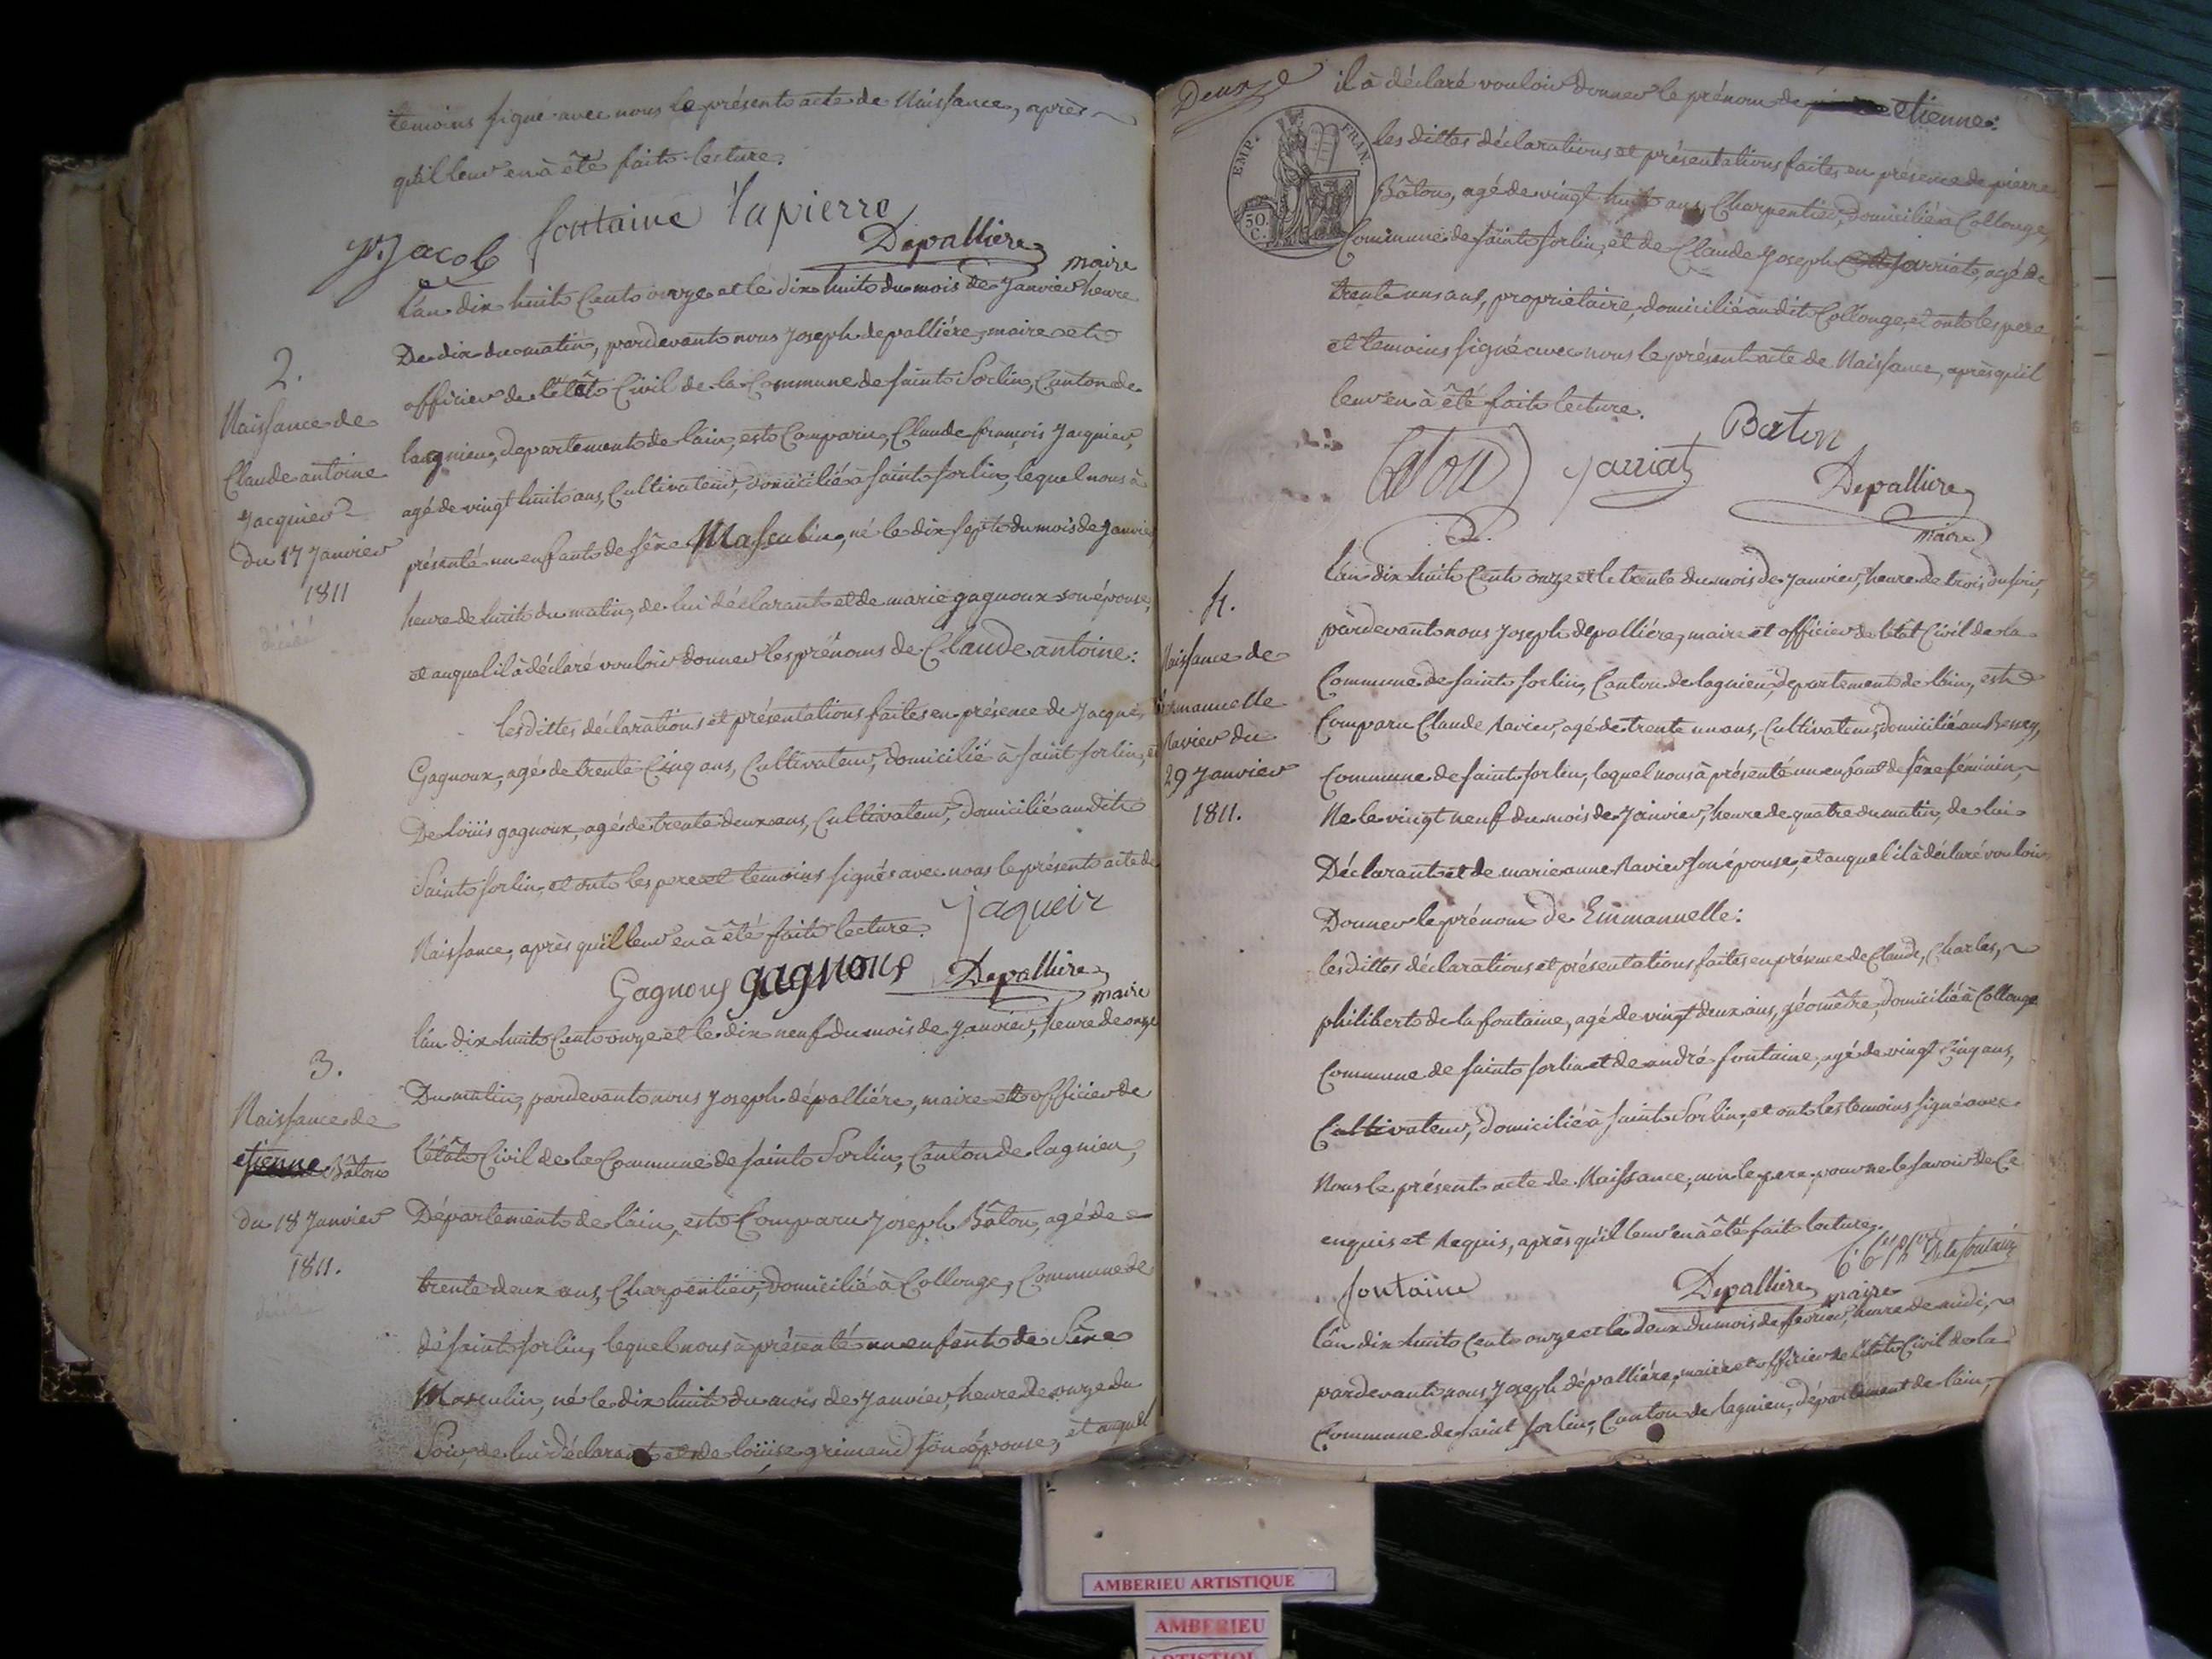 temoins signé avec nous le présent acte de Naissance, après
qu'il leur en à été fait lecture.
P. Jacob fontaine lapierre
Depallière maire
2.
Naissance de
Claude antoine
Jacquier
du 17 Janvier
1811
décédé
l'an dix huit Cent onze et le dix huit du mois de Janvier heure
De dix du matin, pardevant nous Joseph depallière, maire et
officier de l'état Civil de la Commune de saint Sorlin, Canton de
lagnieu, departement de l'ain, est Comparu, Claude françois Jacquier,
agé de vingt huit ans, Cultivateur, domicilié à saint sorlin, lequel nous à
présenté un enfant de séxe Masculin, né le dix sept du mois de Janvier
heure de huit du matin, de lui déclarant et de marie gagnoux son épouse,
et auquel il à déclaré vouloir donner les prénoms de Claude antoine:
les dittes déclarations et présentations faites en présence de Jacque
Gagnoux, agé de trente Cinq ans, Cultivateur, domicilié à saint sorlin, et
De loüis gagnoux, agé de trente deux ans, Cultivateur, domicilié au dit
Saint sorlin, et ont les pere et temoins signés avec nous le présent acte de
Naissance, après qu'il leur en à été fait lecture. jaqueir
Gagnoux gagnoux Depallière maire
3.
Naissance de
etienne Bâton
du 18 Janvier
1811.
l'an dix huit Cent onze et le dix neuf du mois de Janvier, heure de onze
Du matin, pardevant nous Joseph dépallière, maire et officier de
l'état Civil de la Commune de saint Sorlin, Canton de lagnieu,
Département de l'ain, est Comparu Joseph Bâton, agé de
trente deux ans, Charpentier, domicilié à Collonge, Commune de
de saint sorlin, lequel nous à présenté un enfant de Séxe
Masculin, né le dix huit du mois de Janvier, heure de onze du
Soir, de lui déclarant et de loüise grimand son épouse, et auquel
Deuxe
EMP. FRAN.
50 C.
il à déclaré vouloir donner le prénom de etienne:
les dittes déclarations et présentations faites en présence de pierre
Bâton, agé de vingt huit ans, Charpentier, domicilié à Collonge,
Commune de saint sorlin, et de Claude Joseph Jarriat, agé de
trente un ans, propriétaire, domicilié au dit Collonge, et ont les pere
et temoins signé avec nous le présent acte de Naissance, après qu'il
leur en à été fait lecture.
Baton
Baton jarriat Depallière
maire
4.
Naissance de
Emmanuelle
Ravier du
29 Janvier
1811.
l'an dix huit Cent onze et le trente du mois de Janvier, heure de trois du soir,
pardevant nous Joseph depallière, maire et officier de l'état Civil de la
Commune de saint sorlin, Canton de lagnieu, departement de l'ain, est
Comparu Claude Ravier, agé de trente un ans, Cultivateur, domicilié au
Commune de saint sorlin, lequel nous à présenté un enfant de séxe féminin,
Né le vingt neuf du mois de Janvier, heure de quatre du matin, de lui
Déclarant et de marie anne Ravier son épouse, et auquel il à déclaré vouloir
Donner le prénom de Emmanuelle:
les dittes déclarations et présentations faites en présence de Claude, Charles,
philibert de la fontaine, agé de vingt deux ans, géomètre, domicilié à Collonge
Commune de saint sorlin et de andré fontaine, agé de vingt Cinq ans,
Cultivateur, domicilié à saint Sorlin, et ont les temoins signé avec
Nous le présent acte de Naissance, non le pere pour ne le savoir de Ce
enquis et Requis, après qu'il leur en à été fait lecture.
Delafontaine
fontaine Depallière maire
l'an dix huit Cent onze et le deux du mois de fevrier, heure de midi,
pardevant nous Joseph dépallière, maire et officier de l'état Civil de la
Commune de saint sorlin, Canton de lagnieu, département de l'ain,
AMBERIEU ARTISTIQUE
AMBERIEU
ARTISTIQUE